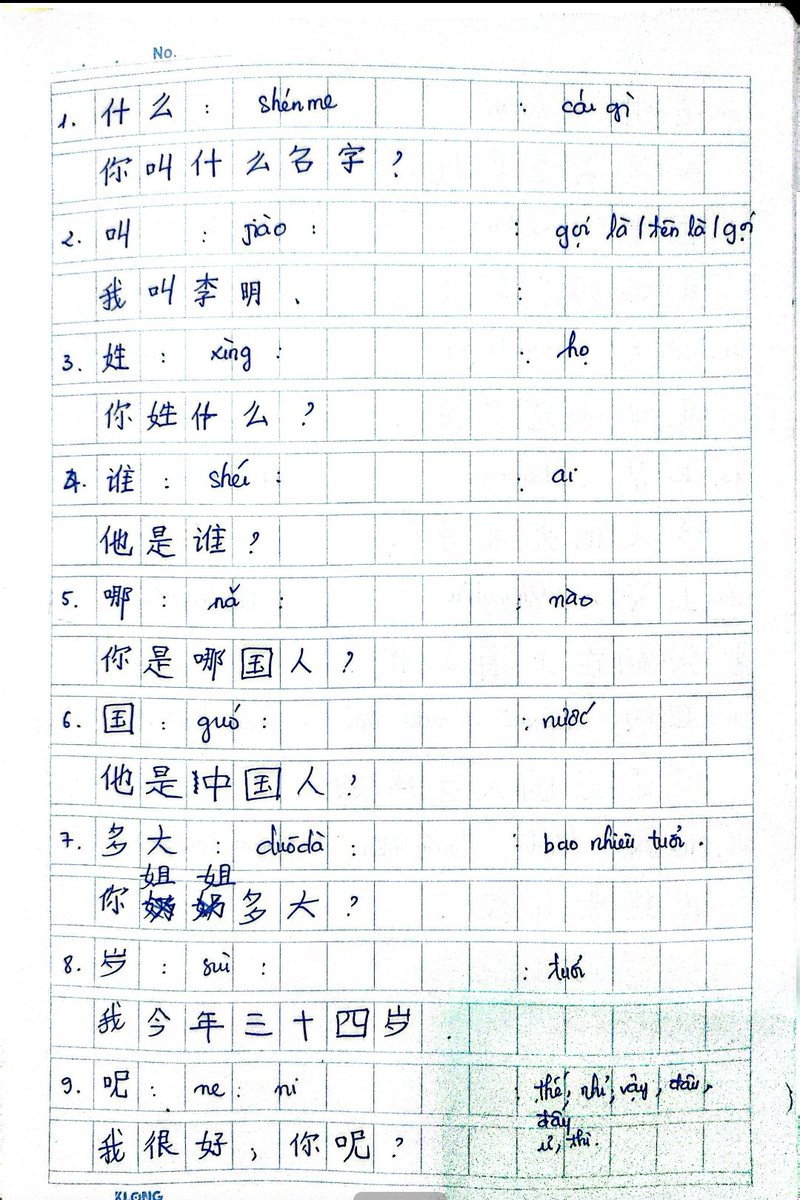 No.
1. 什么 : shénme : cái gì
你叫什么名字?
2. 叫 : jiào : : gọi là / tên là / gọi
我叫李明、 :
3. 姓 : xìng : : họ
你姓什么?
4. 谁 : shéi : : ai
他是谁?
5. 哪 : nǎ : : nào
你是哪国人?
6. 国 : guó : : nước
他是中国人?
7. 多大 : duōdà : : bao nhiêu tuổi.
你姐姐多大?
8. 岁 : suì : : tuổi
我今年三十四岁.
9. 呢 : ne : ni : thế, nhỉ, vậy, đâu,
đấy
我很好, 你呢? ư, thì.
KLONG